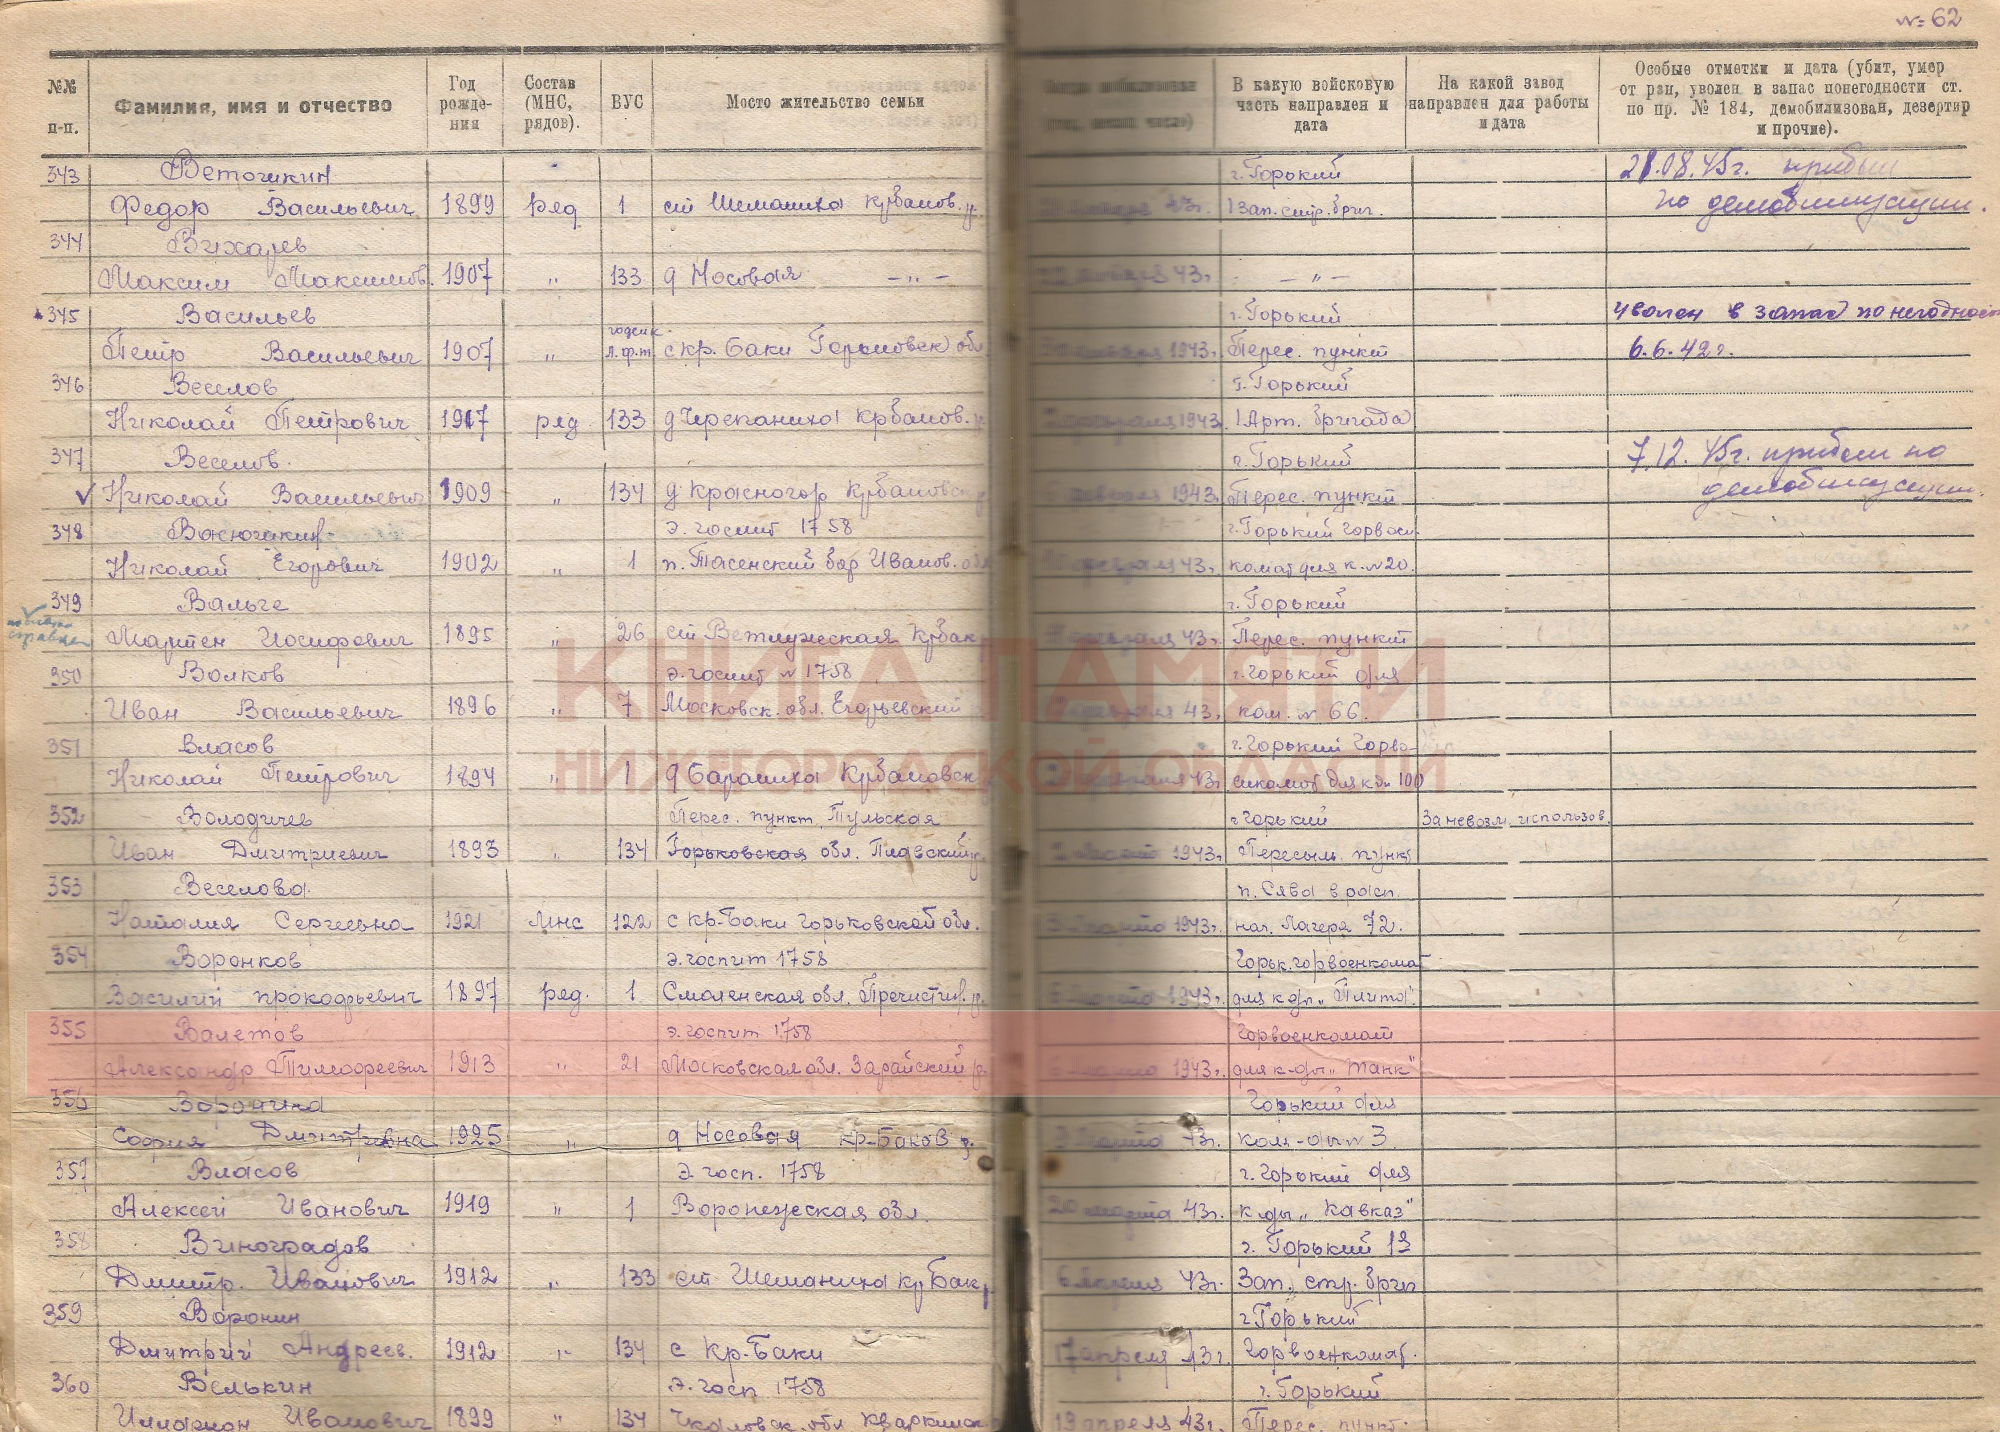 № 62
№№ п-п. Фамилия, имя и отчество Год рожде- ния Состав (МНС, рядов). ВУС Мосто жительство семьи В какую войсковую часть направлен и дата На какой завод направлен для работы и дата Особые отметки и дата (убит, умер от ран, уволен в запас понегодности ст. по пр. № 184, демобилизован, дезертир и прочие).
343 Веточкин г. Горький 21.08.45г. прибыл
Федор Васильевич 1899 ряд 1 ст Шеманиха Крбаков. р. 43г. 1 Зап. стр. бриг. по демобилизации.
344 Вихарев
Максим Максимов. 1907 " 133 д Носовая — " — 43г. — " —
345 Васильев г. Горький уволен в запас по негодности
Петр Васильевич 1907 " годен к л.ф.т. с кр. Баки Горьковск обл. 1943г. Перес. пункт 6.6.42г.
346 Веселов г. Горький
Николай Петрович 1917 ряд 133 д Черепаниха Крбаков. февраля 1943г. 1 Арт. бригада
347 Веселов. г. Горький 7.12.45г. прибыл по
Николай Васильевич 1909 " 134 д Красногор Крбаковск февраля 1943г. Перес. пункт демобилизации.
348 Васючкин э. госпит 1758 г. Горький Горвоен.
Николай Егорович 1902 " 1 п. Тасенский бор Иванов. обл февраля 43г. комат для к. №20.
349 Вальге г. Горький
Мартен Иосифович 1895 " 26 ст Ветлужская Крбак февраля 43г. Перес. пункт
350 Волков э. госпит № 1758 г. Горький для
Иван Васильевич 1896 " 7 Московск. обл. Егорьевский февраля 43г. ком. № 66.
КНИГА ПАМЯТИ
351 Власов г. Горький Горво-
НИЖЕГОРОДСКОЙ ОБЛАСТИ
Николай Петрович 1894 " 1 д Барашиха Крбаковск февраля 43г. енкомат для к-ды 100
352 Володичев Перес. пункт Тульская г Горький За невозм. использов.
Иван Дмитриевич 1893 " 134 Горьковская обл. Плавский р. 2 марта 1943г. Пересыл. пункт
353 Веселова. п. Сява в расп.
Наталия Сергеевна 1921 Мнс 122 с Кр-Баки Горьковской обл. 3 марта 1943г. нач. Лагеря 72.
354 Воронков э. госпит 1758 Горьк. горвоенкомат
Василий Прокофьевич 1897 ряд. 1 Смоленская обл. Пречистин. р. 6 марта 1943г. для к-ды „Плита".
355 Валетов э. госпит 1758 Горвоенкомат
Александр Тимофеевич 1913 " 21 Московская обл. Зарайский р. 6 марта 1943г. для к-ды „Танк"
356 Воронина Горький для
София Дмитриевна 1925 " д Носовая кр-Баков р. марта 43г. ком-ды № 3.
357 Власов э. госп. 1758 г. Горький для
Алексей Иванович 1919 " 1 Воронежская обл. 20 марта 43г. к-ды „Кавказ"
358 Виноградов г. Горький 13
Дмитр. Иванович 1912 " 133 ст Шеманиха кр Бак. р 6 апреля 43г. Зап. стр. бриг
359 Воронин г Горький
Дмитрий Андреев. 1912 " 134 с Кр-Баки 17 апреля 43г. Горвоенкомат.
360 Велькин э. госп 1758 г. Горький
Илларион Иванович 1899 " 134 Чкаловск. обл Кваркинск 19 апреля 43г. Перес. пункт.